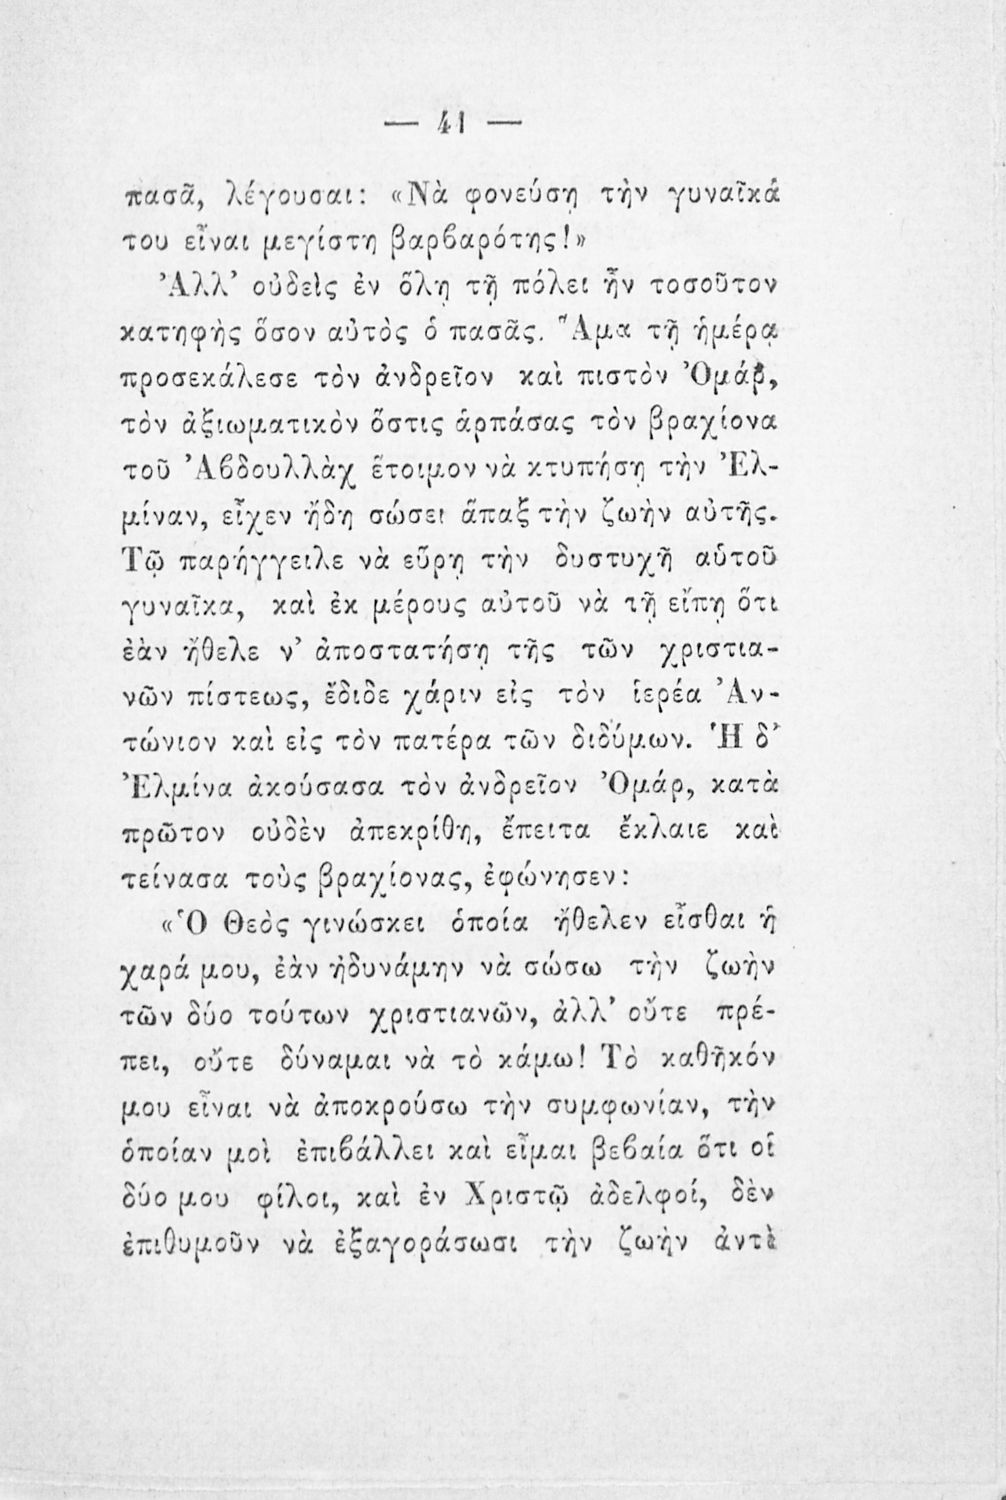 — 41 —
πασᾶ, λέγουσαι: «Νὰ φονεύσῃ τὴν γυναῖκά
του εἶναι μεγίστη βαρϐαρότης!»
Ἀλλ’ οὐδεὶς ἐν ὅλῃ τῇ πόλει ἦν τοσοῦτον
κατηφὴς ὅσον αὐτὸς ὁ πασᾶς. Ἅμα τῇ ἡμέρᾳ
προσεκάλεσε τὸν ἀνδρεῖον καὶ πιστὸν Ὀμάρ,
τὸν ἀξιωματικὸν ὅστις ἁρπάσας τὸν βραχίονα
τοῦ Ἀϐδουλλὰχ ἕτοιμον νὰ κτυπήσῃ τὴν Ἐλ-
μίναν, εἶχεν ἤδη σώσει ἅπαξ τὴν ζωὴν αὐτῆς.
Τῷ παρήγγειλε νὰ εὕρῃ τὴν δυστυχῆ αὑτοῦ
γυναῖκα, καὶ ἐκ μέρους αὐτοῦ νὰ τῇ εἴπῃ ὅτι
ἐὰν ἤθελε ν’ ἀποστατήσῃ τῆς τῶν χριστια-
νῶν πίστεως, ἔδιδε χάριν εἰς τὸν ἱερέα Ἀν-
τώνιον καὶ εἰς τὸν πατέρα τῶν διδύμων. Ἡ δ’
Ἐλμίνα ἀκούσασα τὸν ἀνδρεῖον Ὀμάρ, κατὰ
πρῶτον οὐδὲν ἀπεκρίθη, ἔπειτα ἔκλαιε καὶ
τείνασα τοὺς βραχίονας, ἐφώνησεν:
«Ὁ Θεὸς γινώσκει ὁποία ἤθελεν εἶσθαι ἡ
χαρά μου, ἐὰν ἠδυνάμην νὰ σώσω τὴν ζωὴν
τῶν δύο τούτων χριστιανῶν, ἀλλ’ οὔτε πρέ-
πει, οὔτε δύναμαι νὰ τὸ κάμω! Τὸ καθῆκόν
μου εἶναι νὰ ἀποκρούσω τὴν συμφωνίαν, τὴν
ὁποίαν μοὶ ἐπιϐάλλει καὶ εἶμαι βεϐαία ὅτι οἱ
δύο μου φίλοι, καὶ ἐν Χριστῷ ἀδελφοί, δὲν
ἐπιθυμοῦν νὰ ἐξαγοράσωσι τὴν ζωὴν ἀντὶ